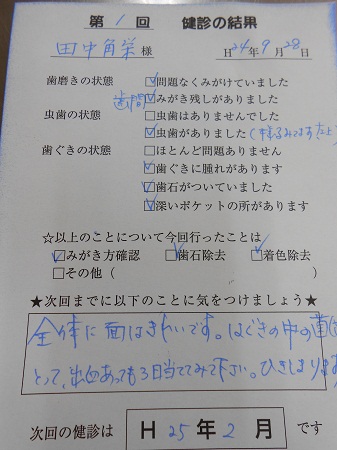 第 1 回 健診の結果
田中角栄 様 H24年9月28日
歯磨きの状態 ☑問題なくみがけていました
歯間 ☑みがき残しがありました
虫歯の状態 □虫歯はありませんでした
☑虫歯がありました(
歯ぐきの状態 □ほとんど問題ありません
☑歯ぐきに腫れがあります
☑歯石がついていました
☑深いポケットの所があります
☆以上のことについて今回行ったことは
☑みがき方確認 ☑歯石除去 ☑着色除去
□その他( )
★次回までに以下のことに気をつけましょう★
全体に面はきれいです。はぐきの中の歯
とって、出血あっても3日当ててみて下さい。ひきしまります
次回の健診は H 25 年 2 月 です